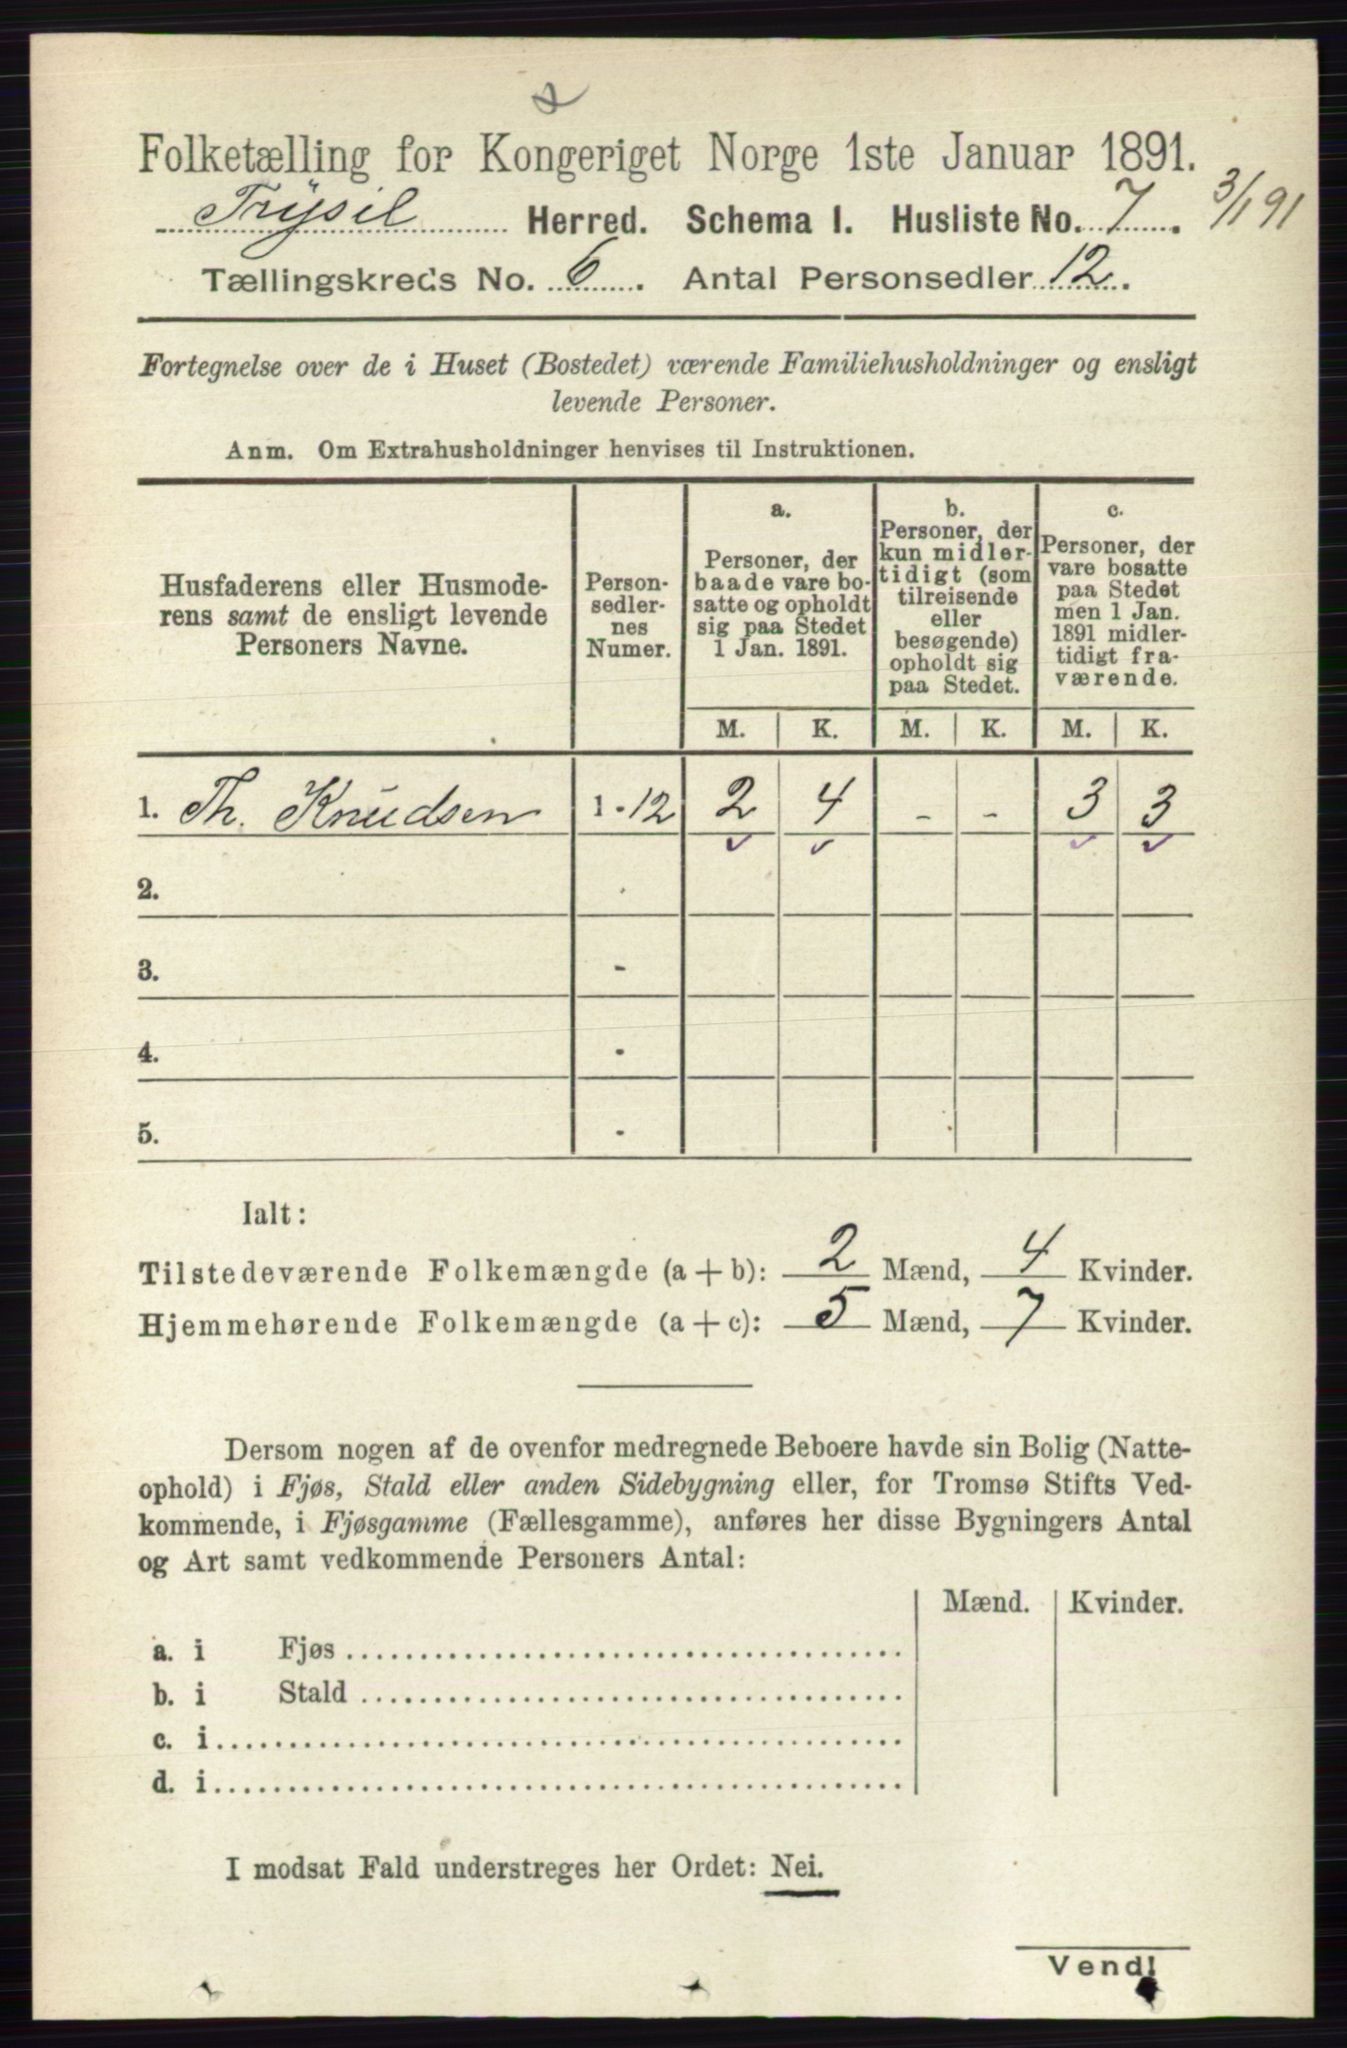 Folketælling for Kongeriget Norge 1ste Januar 1891.
Trysil Herred. Schema I. Husliste No. 7. 3/1 91
Tællingskreds No. 6. Antal Personsedler 12.
Fortegnelse over de i Huset (Bostedet) værende Familiehusholdninger og ensligt
levende Personer.
Anm. Om Extrahusholdninger henvises til Instruktionen.
Husfaderens eller Husmode-
rens samt de ensligt levende
Personers Navne.
Person-
sedler-
nes
Numer.
a.
Personer, der
baade vare bo-
satte og opholdt
sig paa Stedet
1 Jan. 1891.
b.
Personer, der
kun midler-
tidigt (som
tilreisende
eller
besøgende)
opholdt sig
paa Stedet.
c.
Personer, der
vare bosatte
paa Stedet
men 1 Jan.
1891 midler-
tidigt fra-
værende.
M. K. M. K. M. K.
1. Th. Knudsen 1-12 2 4 - - 3 3
2.
3. -
4. -
5. -
Ialt:
Tilstedeværende Folkemængde (a + b): 2 Mænd, 4 Kvinder.
Hjemmehørende Folkemængde (a + c): 5 Mænd, 7 Kvinder.
Dersom nogen af de ovenfor medregnede Beboere havde sin Bolig (Natte-
ophold) i Fjøs, Stald eller anden Sidebygning eller, for Tromsø Stifts Ved-
kommende, i Fjøsgamme (Fællesgamme), anføres her disse Bygningers Antal
og Art samt vedkommende Personers Antal:
Mænd. Kvinder.
a. i Fjøs
b. i Stald
c. i
d. i
I modsat Fald understreges her Ordet: Nei.
Vend!